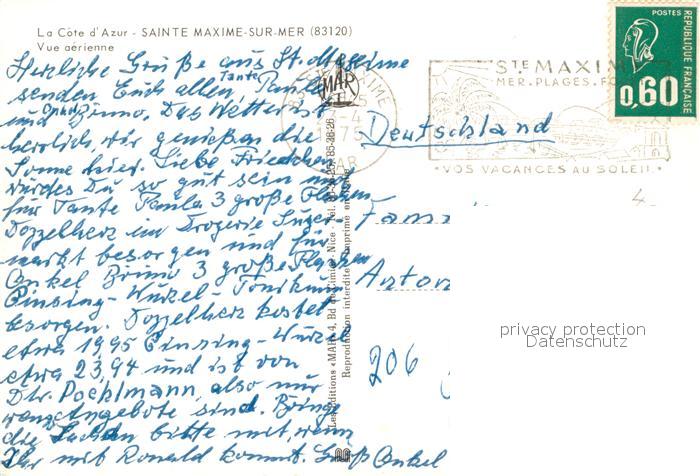 La Côte d'Azur - SAINTE MAXIME-SUR-MER (83120)
Vue aérienne
Herzliche Grüße aus St. Maxime
senden Euch allen Tante Paula
und Onkel Bruno. Das Wetter ist
herrlich, wir genießen die
Sonne hier. Liebe Friedchen
würdes Du so gut sein und
für Tante Paula 3 große Flaschen
Doppelherz im Drogerie Super
markt besorgen und für
Onkel Bruno 3 große Flaschen
Ginsing-Wurzel-Tonikum
besorgen. Doppelherz kostet
etwa 19,95 Ginsing-Wurzel
etwa 23,94 und ist von
Dr. Poehlmann, also nur
wenn Angebote sind. Bringt
die Sachen bitte mit, wenn
Ihr mit Ronald kommt. Gruß Onkel
MAR
Les éditions «MAR» 4, Bd
Nice - Tél.
Reproduction interdite - Imprimé en
STE MAXIME
MER. PLAGES.
• VOS VACANCES AU SOLEIL •
POSTES
REPUBLIQUE FRANÇAISE
0,60
Deutschland
4
Fam
Anton
206
privacy protection
Datenschutz